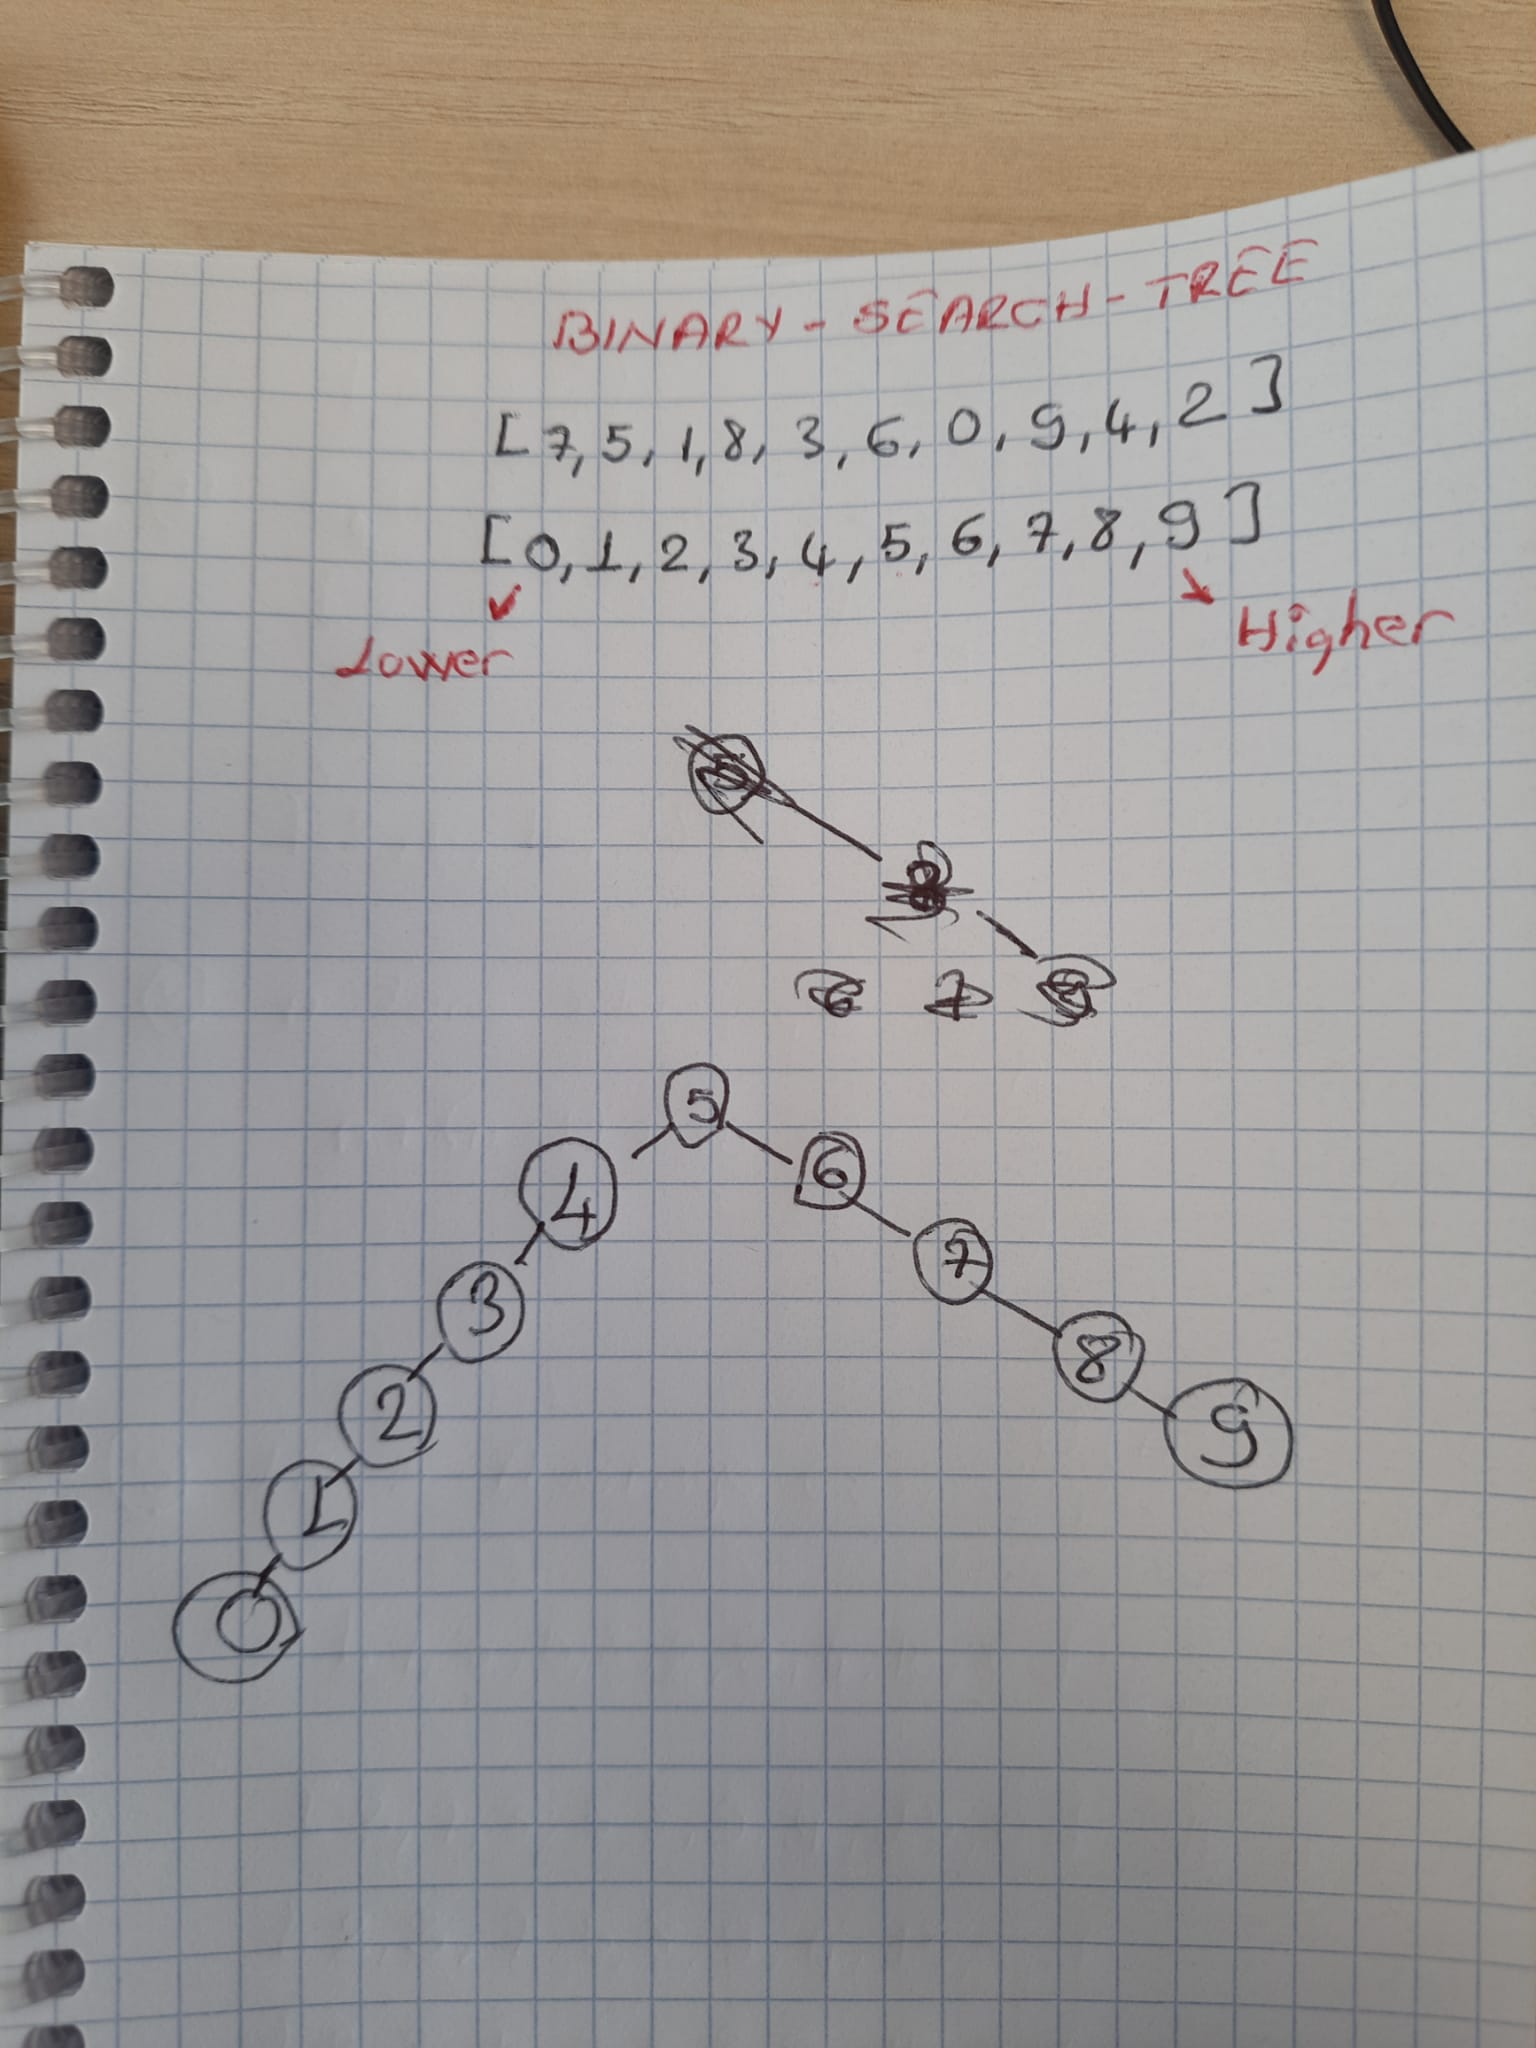 BINARY - SEARCH - TREE
[7, 5, 1, 8, 3, 6, 0, 9, 4, 2]
[0, 1, 2, 3, 4, 5, 6, 7, 8, 9]
Lower
Higher
5
4
6
3
7
2
8
9
1
0